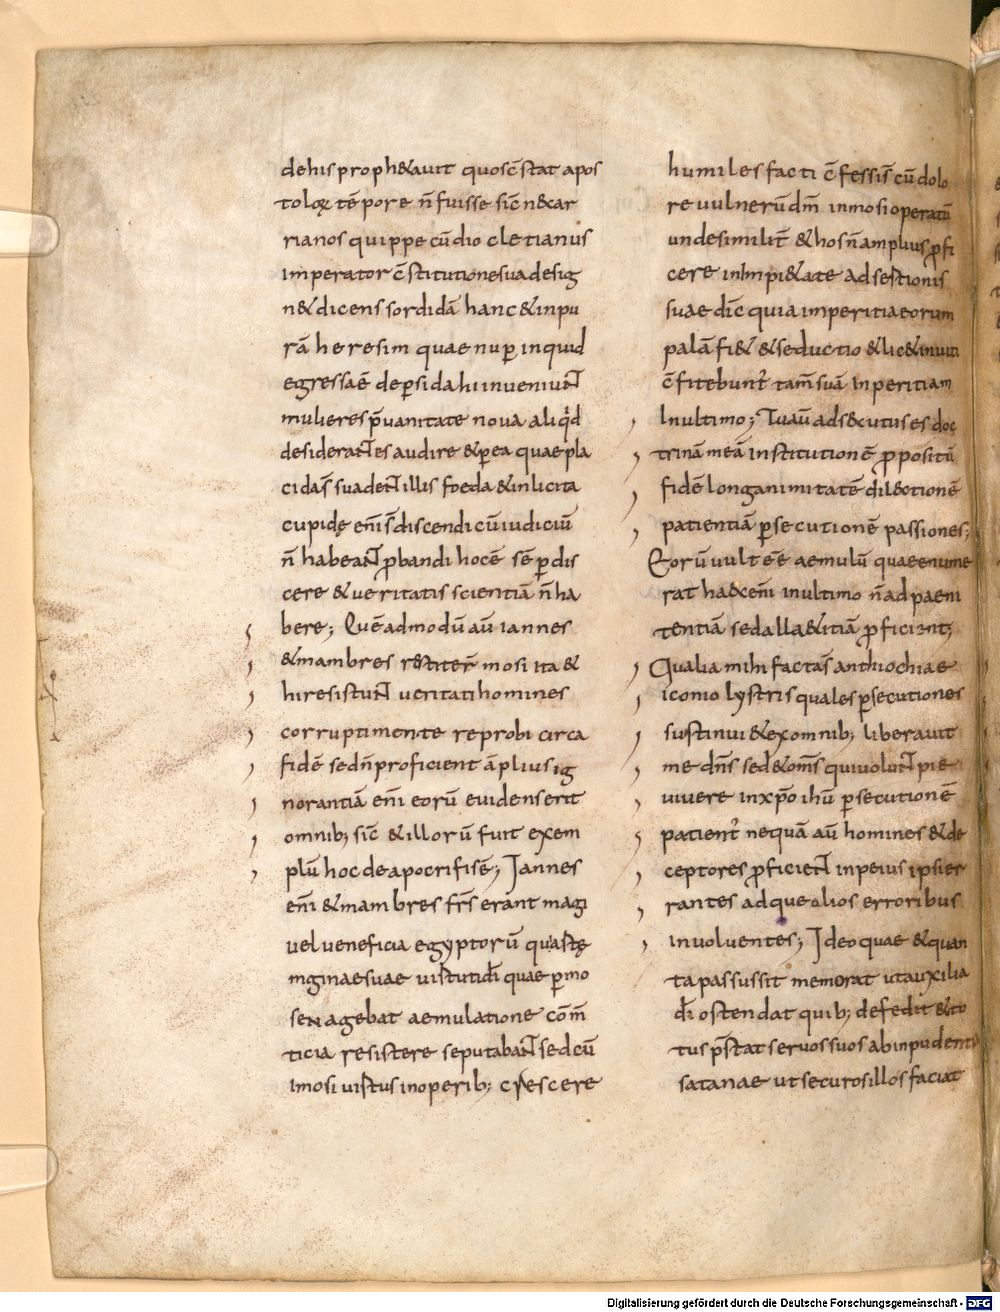 dehis proph&auit quosc̄stat apos
toloꝝ tēpore n̄ fuisse sic̄ n&ar
rianos quippe cū dio cletianus
imperator c̄stitutione sua desig
n& dicens sordidā hanc &inpu
rā heresim quae nuꝑ inquid
egressaē deꝑsida hi inueniunt
mulieres p̄uanitate noua aliqͥd
desiderantes audire &ꝑea quae pla
cidas̄ suadent illis foeda &inlicita
cupidę eni̅s̄ discendi cū iudiciū
n̄ habeant ꝓbandi hocē sēꝑ dis
cere & ueritatis scientiā n̄ ha
bere; Quē admodū aū iannes
&mambres restiter̄ mosi ita &
hi resistunt ueritati homines
corrupti mente reprobi circa
fidē sedn̄ proficient āplius ig
norantiā eni̅ eorū euidens erit
omnib; sic̄ &illorū fuit exem
plū hoc de apocrifis ē; Iannes
eni̅ &mambres fr̄s erant magi
uel uenefici a egyptorū qui astę
mginaesuae uirtuti dī quae ꝑmo
sen agebat aemulatione com̄
ticia resistere se putabant sed cū
imosi uirtus in operib; crescere
humiles facti c̄fessis̄ cū dolo
re uulnerū dm̄ inmosi operatū
unde similit̄ &hos n̄ amplius ꝓfi
cere inimpi&ate ad sectionis
suae dic̄ quia imperitia eorum
palā fi& &seductio &lic& inuiti
c̄fitebunt̄ tam̄ suā inperitiam
In ultimo; Tu aū adsecutus es doc
trinā meā institutionē ꝓpositū
fidē longanimitatē dil&ionē
patientiā ꝑsecutionē passiones;
Eorū uult eē aemulū quae enume
rat haec eni̅ in ultimo n̄ ad paeni
tentiā sed alla&itiā ꝓficient;
Qualia mihi factas̄ anthiochiae
iconio lystris quales ꝑsecutiones
sustinui &ex omnib; liberauit
me dn̄s sed &om̄s qui uolunt pie
uiuere inxp̄o ihū ꝑsecutionē
patient̄ nequā aū homines &de
ceptores ꝓficient in peius ipsi er
rantes adque alios erroribus
inuoluentes; Ideo quae &quan
ta passus sit memorat ut auxilia
dī ostendat quib; defedit &to
tus p̄stat seruos suos ab inpudenti
satanae ut securos illos faciat
Digitalisierung gefördert durch die Deutsche Forschungsgemeinschaft - DFG